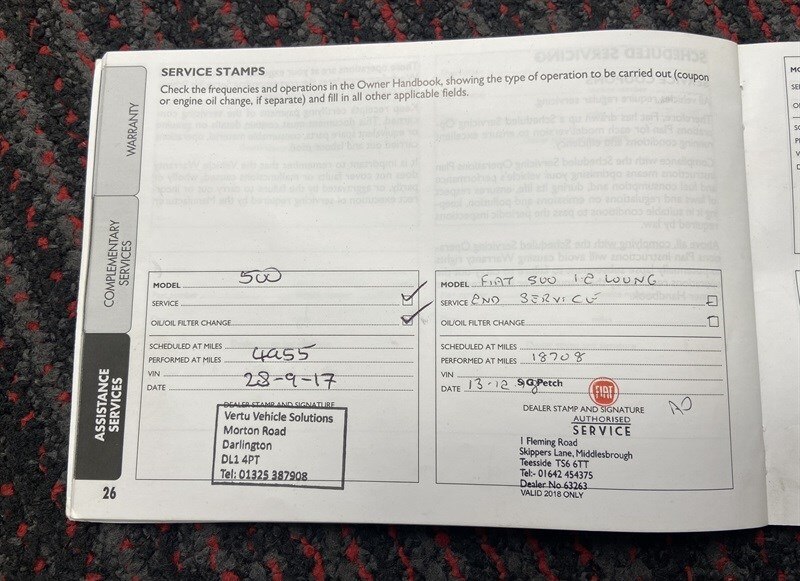 SERVICE STAMPS
Check the frequencies and operations in the Owner Handbook, showing the type of operation to be carried out (coupon
or engine oil change, if separate) and fill in all other applicable fields.
WARRANTY
COMPLEMENTARY
SERVICES
ASSISTANCE
SERVICES
MODEL 500
SERVICE
OIL/OIL FILTER CHANGE
SCHEDULED AT MILES
PERFORMED AT MILES 4955
VIN
DATE 28-9-17
DEALER STAMP AND SIGNATURE
Vertu Vehicle Solutions
Morton Road
Darlington
DL1 4PT
Tel: 01325 387908
26
MODEL FIAT 500 1.2 LOUNG
SERVICE 2ND SERVICE
OIL/OIL FILTER CHANGE
SCHEDULED AT MILES
PERFORMED AT MILES 18708
VIN
DATE 13-12 S G Petch
FIAT
DEALER STAMP AND SIGNATURE
AUTHORISED
SERVICE
1 Fleming Road
Skippers Lane, Middlesbrough
Teesside TS6 6TT
Tel:- 01642 454375
Dealer No 63263
VALID 2018 ONLY